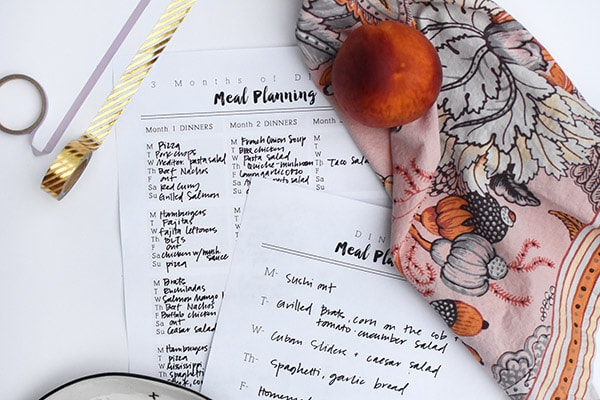 3 Months of D
Meal Planning
Month 1 DINNERS
M Pizza
T Pork chops
W Mediter. pasta salad
Th Beef Nachos
F out
Sa Red Curry
Su Grilled Salmon
M Hamburgers
T Fajitas
W Fajita leftovers
Th BLTs
F out
Sa chicken w/mush sauce
Su pizza
M Brats
T Enchiladas
W Salmon Mango
Th Beef Nachos
F Buffalo chicken
Sa out
Su Caesar salad
M Hamburgers
T pizza
W Mississippi
Th Spaghetti
F out
Month 2 DINNERS
M French Onion Soup
T BBQ chicken
W Pasta Salad
Th Quiche-mushroom
F Lemon garlic orzo
Sa pasta salad
Su
M
W
Mont
M
T
W
Th Taco Salad
F
Sa
Su
DIN
Meal Plan
M- Sushi out
T- Grilled Brats, corn on the cob +
tomato-cucumber salad
W- Cuban Sliders + caesar salad
Th- Spaghetti, garlic bread
F- Homemade